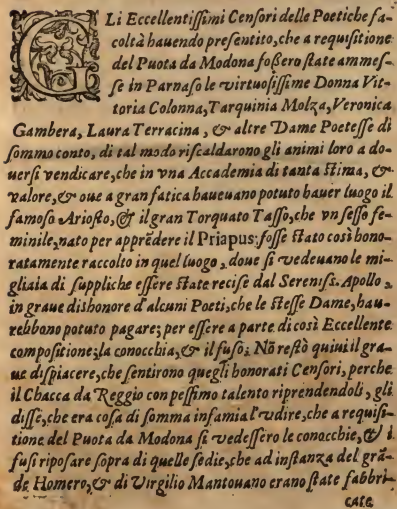 GLi Eccellentißimi Cenſori delle Poetiche fa-
coltà hauendo preſentito, che a requiſitione
del Puota da Modona foßero ſtate ammeſ-
ſe in Parnaſo le virtuoſißime Donna Vit-
toria Colonna, Tarquinia Molza, Veronica
Gambera, Laura Terracina, & altre Dame Poeteſſe di
ſommo conto, di tal modo riſcaldarono gli animi loro a do-
uerſi vendicare, che in vna Accademia di tanta ſtima, &
valore, & oue a gran fatica haueuano potuto hauer luogo il
famoſo Arioſto, & il gran Torquato Taſſo, che vn ſeſſo fe-
minile, nato per apprẽdere il Priapus; foſſe ſtato così hono-
ratamente raccolto in quel luogo, doue ſi vedeuano le mi-
gliaia di ſuppliche eſſere ſtate reciſe dal Sereniſs. Apollo,
in graue dishonore d'alcuni Poeti, che le ſteſſe Dame, hau-
rebbono potuto pagare; per eſſere a parte di così Eccellente
compoſitione; la conocchia, & il fuſo; Nõ reſtò quiui il gra-
ue diſpiacere, che ſentirono quegli honorati Cenſori, perche
il Chacca da Reggio con peſſimo talento riprendendoli, gli
diſſe, che era coſa di ſomma infamia l'vdire, che a requiſi-
tione del Puota da Modona ſi vedeſſero le conocchie, & i
fuſi ripoſare ſopra di quelle ſedie, che ad inſtanza del grã-
de Homero, & di Virgilio Mantouano erano ſtate fabbri-
cate